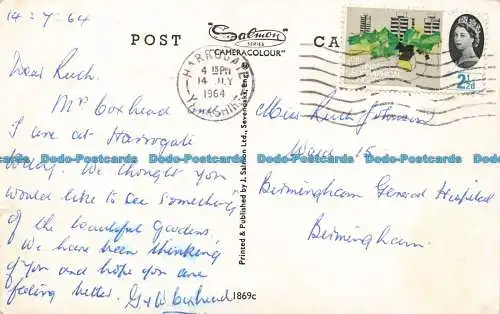 14-7-64
Dear Ruth.
Mr Coxhead
I are at Harrogate
today. We thought you
would like to see something
of the beautiful gardens.
We have been thinking
of you and hope you are
feeling better. G & W Coxhead
POST
"Salmon
SERIES
CAMERACOLOUR"
CA
HARROGATE
4 15 PM
14 JLY
1964
YORKSHIRE
2½d
Printed & Published by J. Salmon Ltd., Sevenoaks, Eng
1869c
Miss Ruth Johnson
Ward 15
Birmingham General Hospital
Birmingham.
www.bidstitch.com